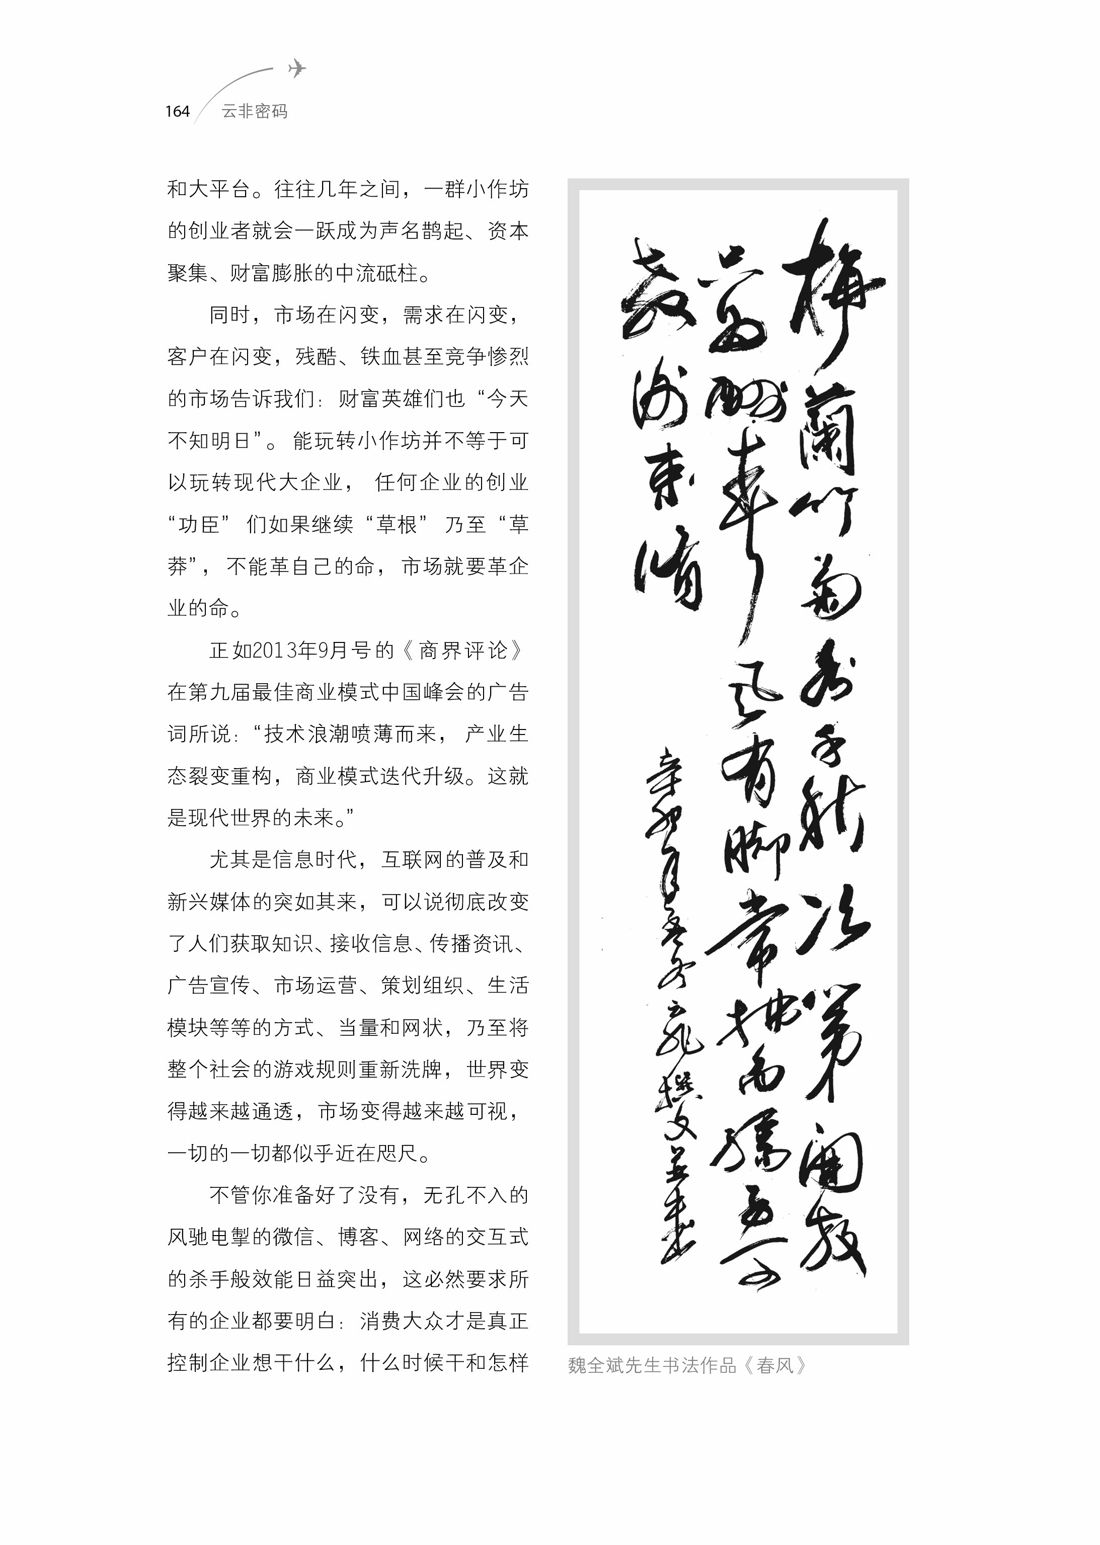 164
云非密码
和大平台。往往几年之间，一群小作坊
的创业者就会一跃成为声名鹊起、资本
聚集、财富膨胀的中流砥柱。
同时，市场在闪变，需求在闪变，
客户在闪变，残酷、铁血甚至竞争惨烈
的市场告诉我们：财富英雄们也“今天
不知明日”。能玩转小作坊并不等于可
以玩转现代大企业，任何企业的创业
“功臣”们如果继续“草根”乃至“草
莽”，不能革自己的命，市场就要革企
业的命。
正如2013年9月号的《商界评论》
在第九届最佳商业模式中国峰会的广告
词所说：“技术浪潮喷薄而来，产业生
态裂变重构，商业模式迭代升级。这就
是现代世界的未来。”
尤其是信息时代，互联网的普及和
新兴媒体的突如其来，可以说彻底改变
了人们获取知识、接收信息、传播资讯、
广告宣传、市场运营、策划组织、生活
模块等等的方式、当量和网状，乃至将
整个社会的游戏规则重新洗牌，世界变
得越来越通透，市场变得越来越可视，
一切的一切都似乎近在咫尺。
不管你准备好了没有，无孔不入的
风驰电掣的微信、博客、网络的交互式
的杀手般效能日益突出，这必然要求所
有的企业都要明白：消费大众才是真正
控制企业想干什么，什么时候干和怎样
梅蘭竹菊秀千秋次第開放
只為酬春風有脚常拂面
辛卯年
云飛撰文並書
魏全斌先生书法作品《春风》